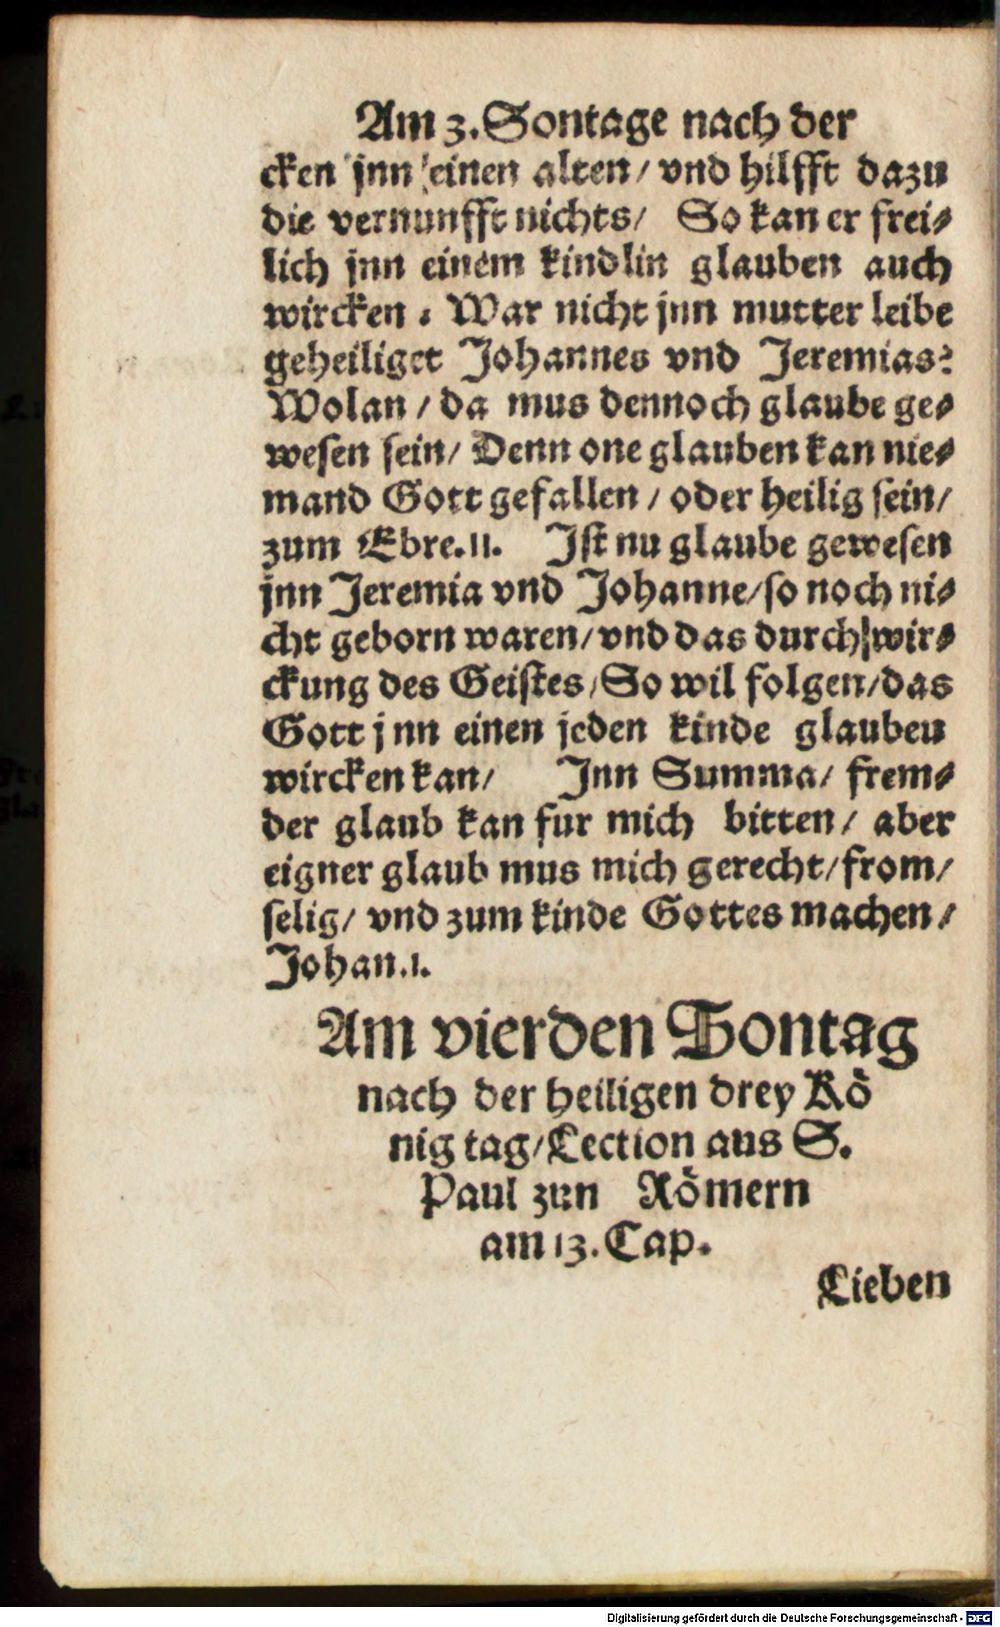 Am 3. Sontage nach der
cken jnn einen alten / vnd hilfft dazu
die vernunfft nichts / So kan er frei⸗
lich jnn einem kindlin glauben auch
wircken . War nicht jnn mutter leibe
geheiliget Johannes vnd Jeremias?
Wolan / da mus dennoch glaube ge⸗
wesen sein / Denn one glauben kan nie⸗
mand Gott gefallen / oder heilig sein /
zum Ebre. 11. Ist nu glaube gewesen
jnn Jeremia vnd Johanne / so noch ni⸗
cht geborn waren / vnd das durch wir⸗
ckung des Geistes / So wil folgen / das
Gott jnn einen jeden kinde glauben
wircken kan / Inn Summa / frem⸗
der glaub kan fur mich bitten / aber
eigner glaub mus mich gerecht / from /
selig / vnd zum kinde Gottes machen /
Johan. 1.
Am vierden Sontag
nach der heiligen drey Kö
nig tag / Lection aus S.
Paul zun Römern
am 13. Cap.
Lieben
Digitalisierung gefördert durch die Deutsche Forschungsgemeinschaft - DFG